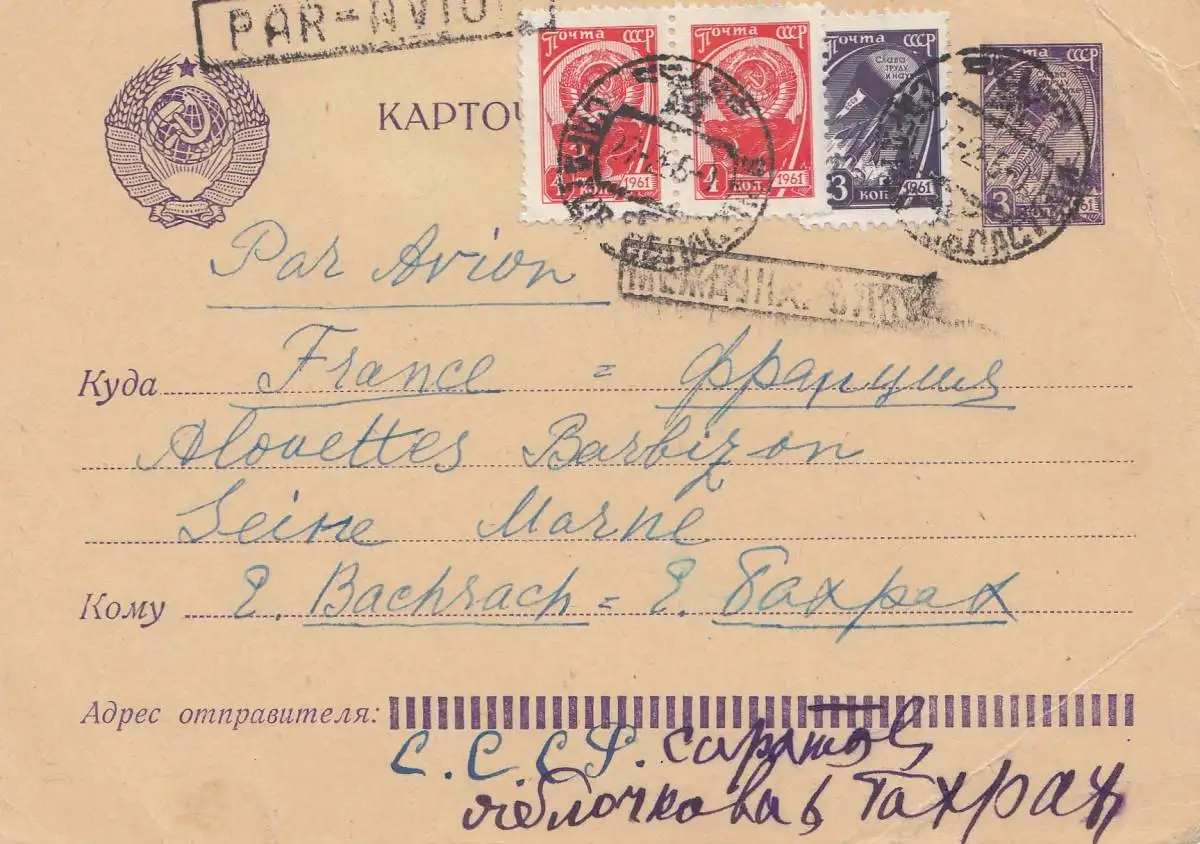 PAR-AVION
Почта СССР
4 коп. 1961
Почта СССР
4 коп. 1961
Почта СССР
Слава труду и науке
3 коп. 1961
Почта СССР
3 коп. 1961
КАРТОЧ
Par Avion
МЕЖДУНАРОДНОЕ
Куда France = Франция
Alouettes Barbizon
Seine Marne
Кому E. Bachrach = Е. Бахрах
Адрес отправителя:
С.С.С.Р. Саратов
Яблочкова 6 Бахрах